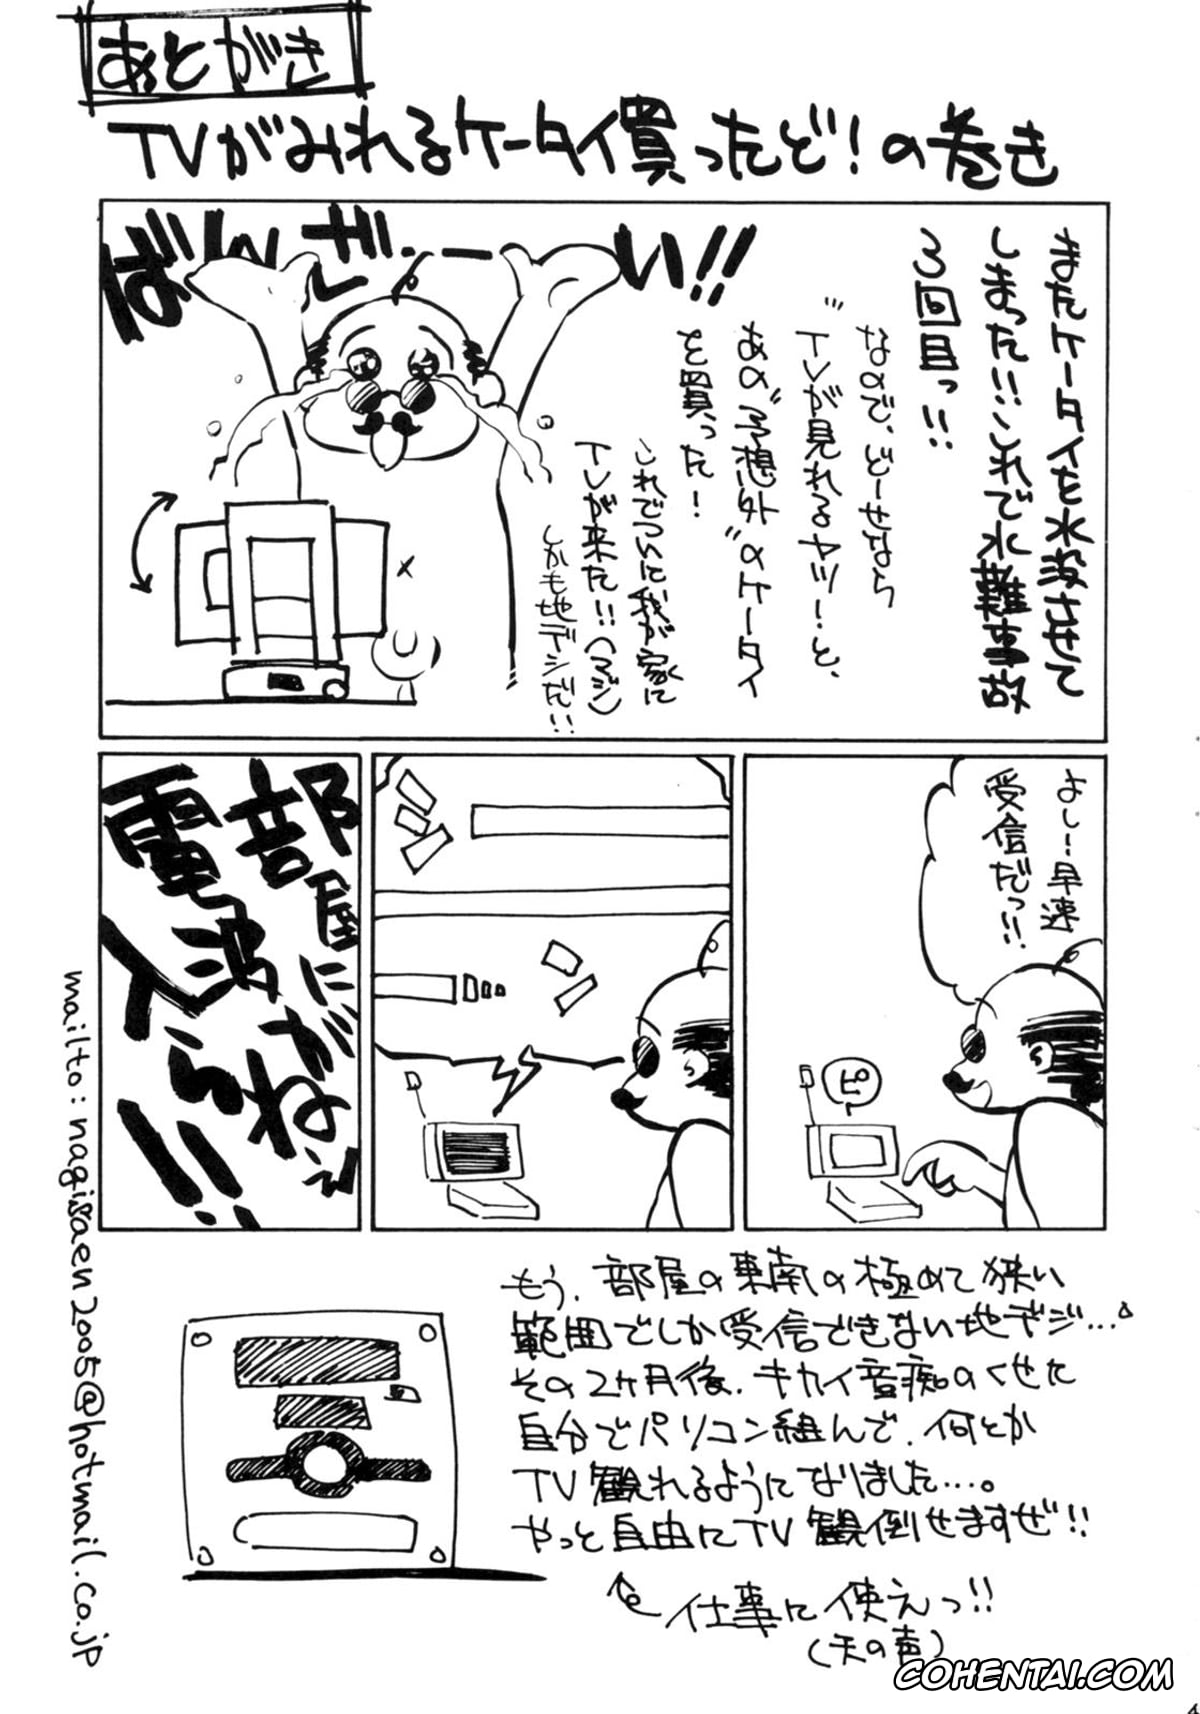 あとがき
TVがみれるケータイ買ったど!の巻き
またケータイを水没させて
しまった!!これで水難事故
3回目っ!!
なので、どーせなら
"TVが見れるヤツ!"と、
あの"予想外"のケータイ
を買った!
ばんざーい!!
これでついに我が家に
TVが来た!!(マジ)
しかも地デジだ!!
よし!早速
受信だっ!!
ピ
部屋に
電波がねぇ
入らん!!
もう、部屋の東南の極めて狭い
範囲でしか受信できない地デジ…。
その2ヶ月後、キカイ音痴のくせた
自分でパソコン組んで、何とか
TV観れるようになりました…。
やっと自由にTV観倒せますぜ!!
仕事に使えっ!!
(天の声)
mailto:nagisaen2005@hotmail.co.jp
COHENTAI.COM
4